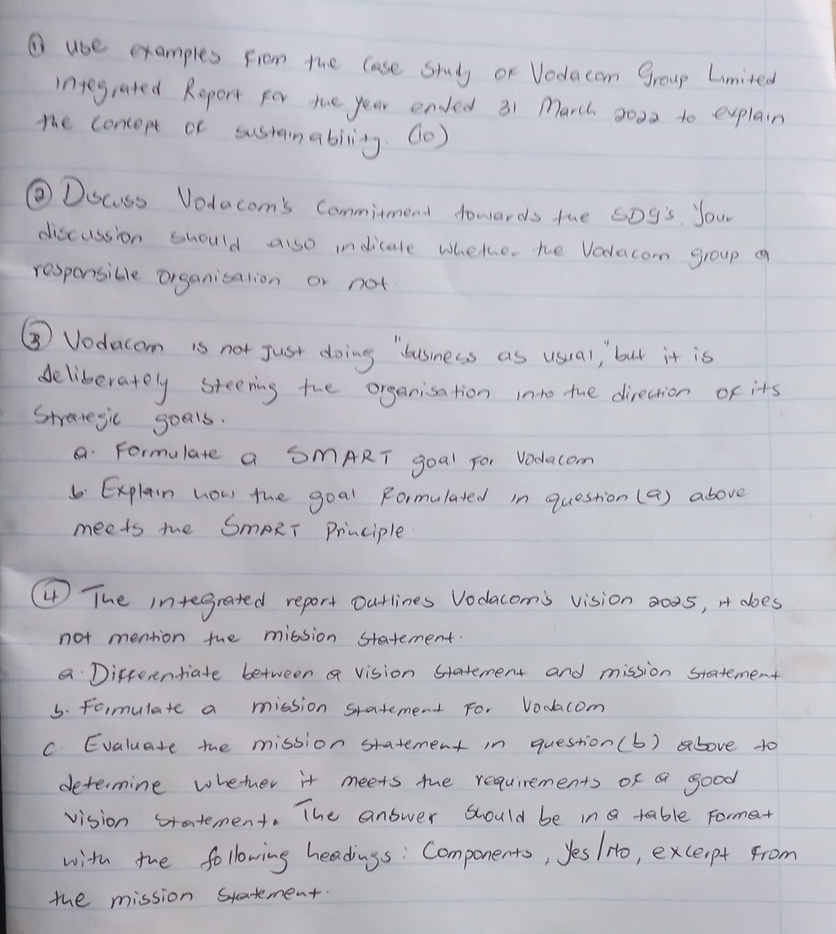 ① Use examples from the case study of Vodacom Group Limited
integrated Report for the year ended 31 March 2022 to explain
the concept of sustainability. (10)
② Discuss Vodacom's commitment towards the SDG's. Your
discussion should also indicate whether the Vodacom group a
responsible organisation or not
③ Vodacom is not just doing "business as usual," but it is
deliberately steering the organisation into the direction of its
strategic goals.
a. Formulate a SMART goal for Vodacom
b. Explain how the goal formulated in question (a) above
meets the SMART Principle
④ The integrated report outlines Vodacom's vision 2025, it does
not mention the mission statement.
a. Differentiate between a vision statement and mission statement
b. Formulate a mission statement for Vodacom
c. Evaluate the mission statement in question (b) above to
determine whether it meets the requirements of a good
vision statement. The answer should be in a table format
with the following headings: Components, Yes/No, excerpt from
the mission statement.